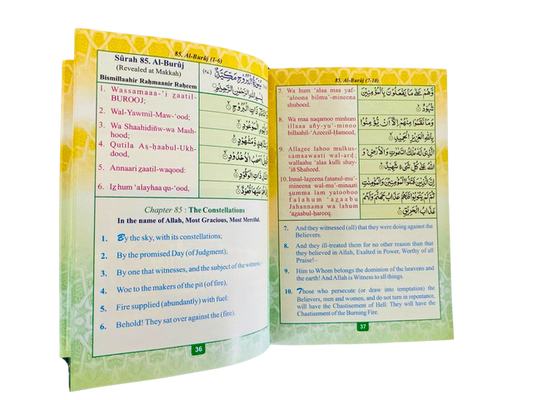 85. Al-Burûj (1-6)
Sûrah 85. Al-Burûj
(Revealed at Makkah)
Bismillaahir Rahmaanir Raheem
1. Wassamaaa-'i zaatil-
BUROOJ;
2. Wal-Yawmil-Maw-'ood;
3. Wa Shaahidiñw-wa Mash-
hood;
4. Qutila Aṣ-ḥaabul-Ukh-
dood,
5. Annaari zaatil-waqood:
6. Iẓ hum 'alayhaa qu-'ood,
بِسْمِ اللّٰهِ الرَّحْمٰنِ الرَّحِيْمِ
وَالسَّمَآءِ ذَاتِ الْبُرُوْجِ
وَالْيَوْمِ الْمَوْعُوْدِ
وَشَاهِدٍ وَّمَشْهُوْدٍ
قُتِلَ اَصْحٰبُ الْاُخْدُوْدِ
النَّارِ ذَاتِ الْوَقُوْدِ
اِذْ هُمْ عَلَيْهَا قُعُوْدٌ
Chapter 85 : The Constellations
In the name of Allah, Most Gracious, Most Merciful.
1. By the sky, with its constellations;
2. By the promised Day (of Judgment);
3. By one that witnesses, and the subject of the witness
4. Woe to the makers of the pit (of fire),
5. Fire supplied (abundantly) with fuel:
6. Behold! They sat over against the (fire),
36
85. Al-Burûj (7-10)
7. Wa hum 'alaa maa yaf-
'aloona bilmu'-mineena
shuhood.
8. Wa maa naqamoo minhum
illaaa añy-yu'-minoo
billaahil-'Azeezil-Ḥameed,
9. Allaẓee lahoo mulkus-
samaawaati wal-arḍ:
wallaahu 'alaa kulli shay-
'iñ Shaheed.
10. Innal-laẓeena fatanul-mu'-
mineena wal-mu'-minaati
ṣumma lam yatooboo
falahum 'aẓaabu
Jahannama wa lahum
'aẓaabul-ḥareeq.
وَّهُمْ عَلٰى مَا يَفْعَلُوْنَ بِالْمُؤْمِنِيْنَ
شُهُوْدٌ
وَمَا نَقَمُوْا مِنْهُمْ اِلَّآ اَنْ يُّؤْمِنُوْا
بِاللّٰهِ الْعَزِيْزِ الْحَمِيْدِ
الَّذِيْ لَهٗ مُلْكُ السَّمٰوٰتِ وَالْاَرْضِ وَ
اللّٰهُ عَلٰى كُلِّ شَيْءٍ شَهِيْدٌ
اِنَّ الَّذِيْنَ فَتَنُوا الْمُؤْمِنِيْنَ وَالْمُؤْمِنٰتِ
ثُمَّ لَمْ يَتُوْبُوْا فَلَهُمْ عَذَابُ جَهَنَّمَ وَلَهُمْ
عَذَابُ الْحَرِيْقِ
7. And they witnessed (all) that they were doing against the
Believers.
8. And they ill-treated them for no other reason than that
they believed in Allah, Exalted in Power, Worthy of all
Praise!-
9. Him to Whom belongs the dominion of the heavens and
the earth! And Allah is Witness to all things.
10. Those who persecute (or draw into temptation) the
Believers, men and women, and do not turn in repentance,
will have the Chastisement of Hell: They will have the
Chastisement of the Burning Fire.
37